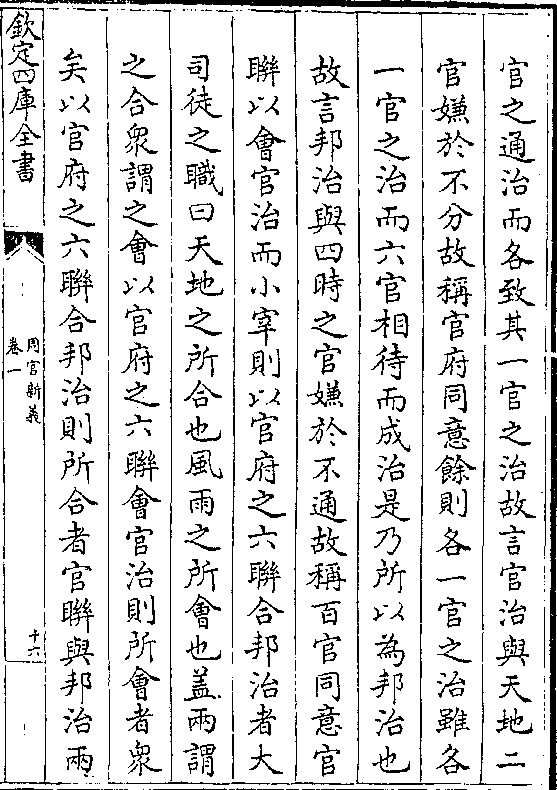 官之通治而各致其一官之治故言官治與天地二
官嫌於不分故稱官府同意餘則各一官之治雖各
一官之治而六官相待而成治是乃所以為邦治也
故言邦治與四時之官嫌於不通故稱百官同意官
聯以會官治而小宰則以官府之六聯合邦治者大
司徒之職曰天地之所合也風雨之所會也蓋兩謂
之合衆謂之會以官府之六聯會官治則所會者衆
矣以官府之六聯合邦治則所合者官聯與邦治兩
欽定四庫全書
周官新義
卷一
十六